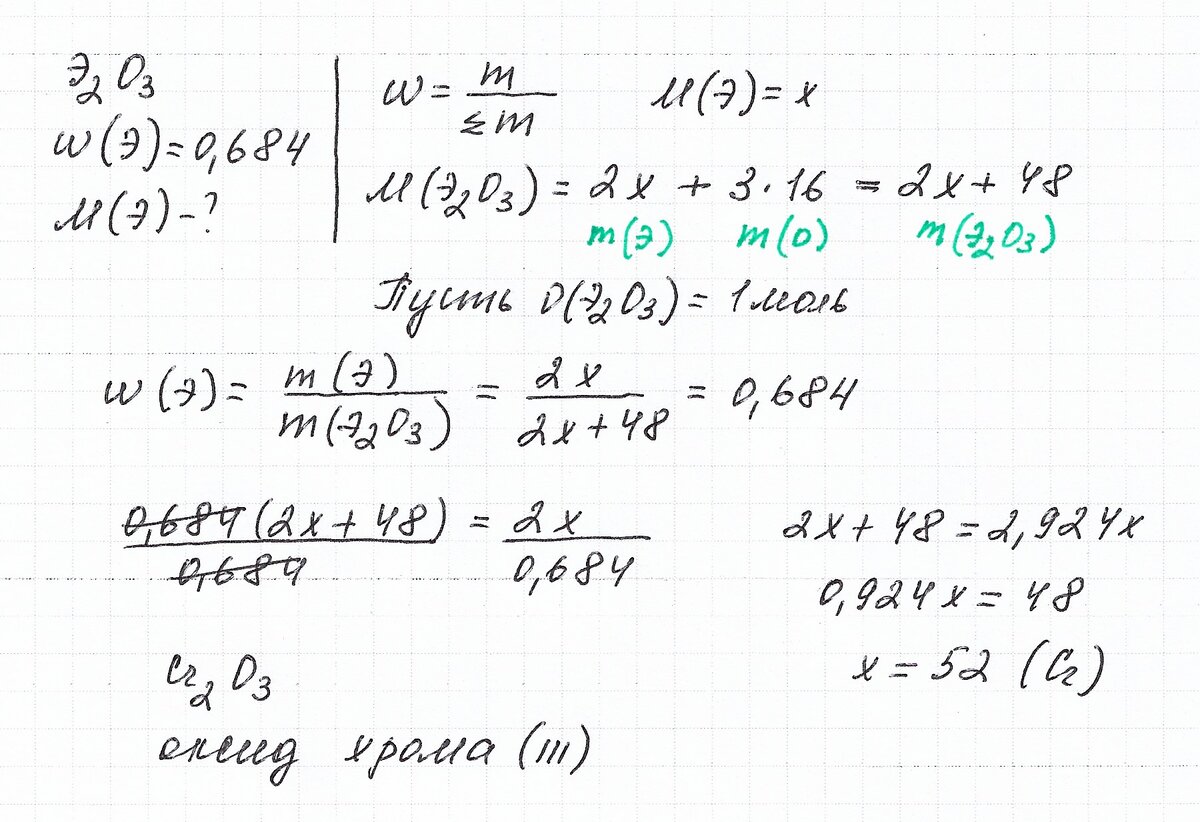 Э₂O₃
w(Э)=0,684
M(Э)-?
w = m/Σm M(Э)=x
M(Э₂O₃) = 2x + 3·16 = 2x + 48
m(Э) m(O) m(Э₂O₃)
Пусть υ(Э₂O₃) = 1 моль
w(Э) = m(Э)/m(Э₂O₃) = 2x/(2x+48) = 0,684
0,684(2x+48)/0,684 = 2x/0,684
2x + 48 = 2,924x
0,924x = 48
x = 52 (Cr)
Cr₂O₃
оксид хрома (III)